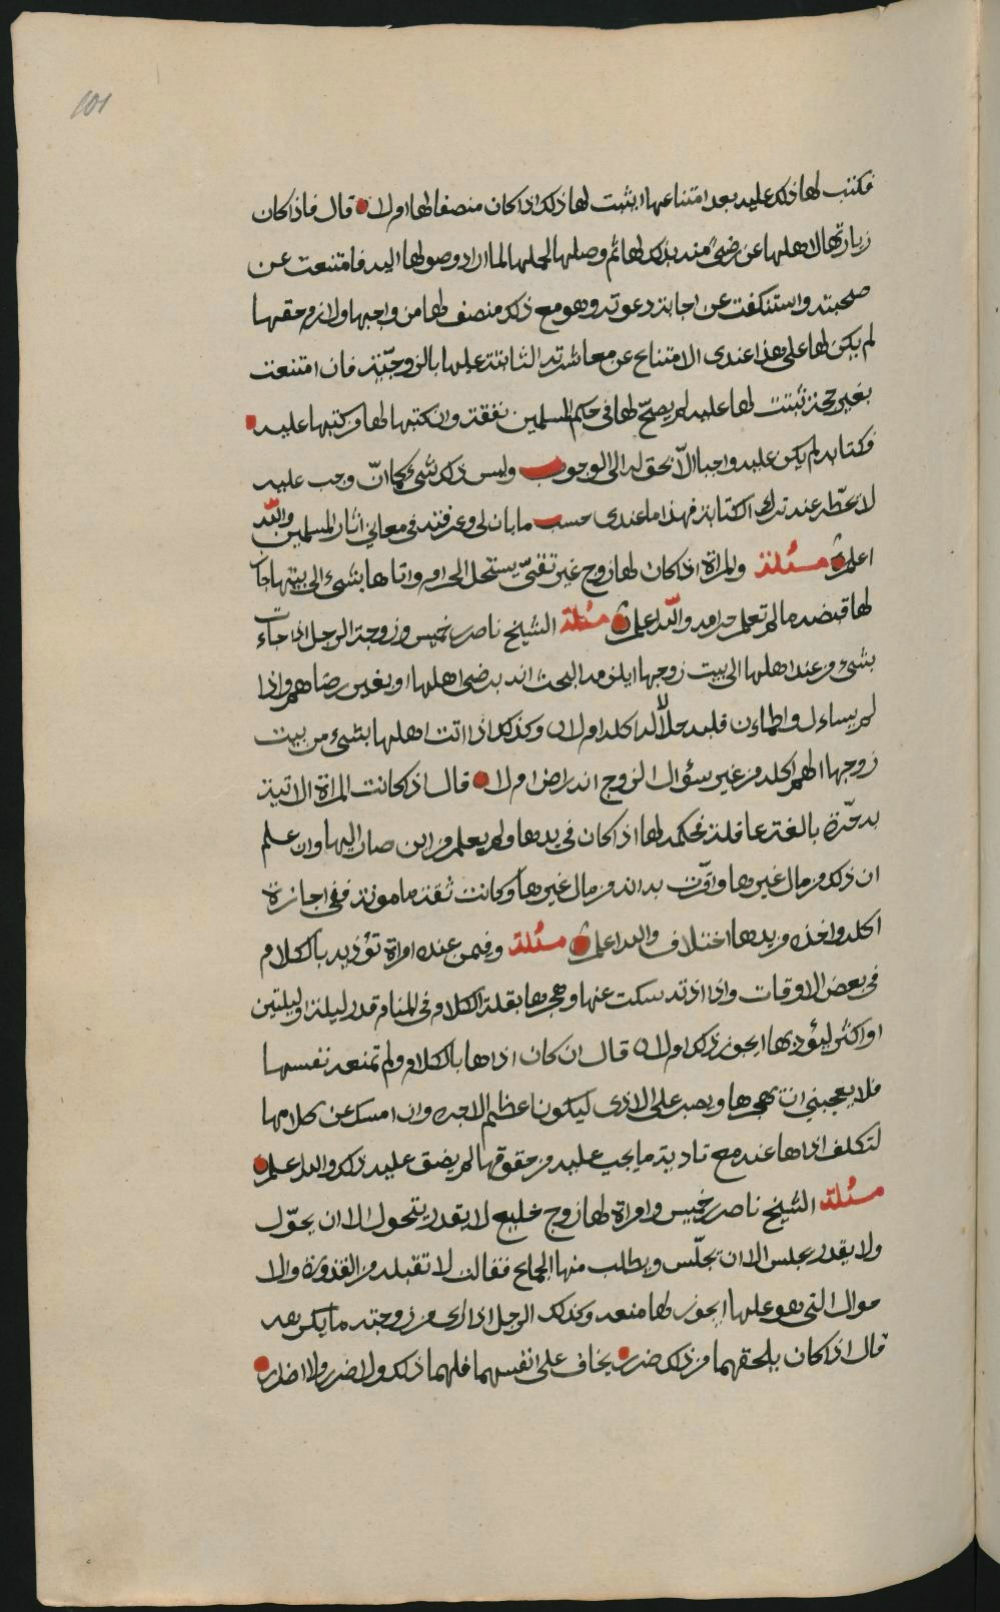 101
فكتب لها ذلك عليه بعد امتناعها ايثبت لها ذلك اذا كان منصفا لها ام لا قال فاذا كان
زيارتها لاهلها عن رضىً منه بذلك لها ثم وصلها لحملها لما اراد وصولها اليه فامتنعت عن
صحبته واستنكفت عن اجابة دعوته وهو مع ذلك منصف لها من واجبها ولازم حقها
لم يكن لها على هذا عندى الامتناع عن معاشرته الثابتة عليها بالزوجيّة فان امتنعت
بغير حجة تثبت لها عليه لم يصحّ لها فى حكم المسلمين نفقة وان كتبها لها من كتبها عليه
فكتابه لم يكن عليه واجبا الّا بحق له الى الوجوب وليس ذلك بشىء كما انّ وجب عليه
لا يحطّه عنه ترك الكتابة فهذا ما عندى حسب ما بان لى وعرفته فى معانى اثار المسلمين والله
اعلم مسئلة والمراة اذا كان لها زوج غير تقىّ يستحل الحرام واتاها بشىء الى بيتها جاز
لها قبضه ما لم تعلم حرامه والله اعلم مسئلة الشيخ ناصر بن خميس وزوجة الرجل اذا جاءت
بشىء من عند اهلها الى بيت زوجها ايلزمه البحث انه برضى اهلها او بغير رضاهم واذا
لم يساءل واطماءن قلبه حلالًا له اكله ام لا وكذلك اذا اتت اهلها بشىء من بيت
زوجها الهم اكله من غير سؤال الزوج انه راض ام لا قال اذا كانت المراة الاتية
به حرّة بالغة عاقلة فحكمه لها اذا كان فى يدها ولم يعلم من اين صار اليها وان علم
ان ذلك من مال غيرها واقرّت به انه من مال غيرها وكانت ثقة مامونة ففى اجازة
اكله واخذه من يدها اختلاف والله اعلم مسئلة وفيمن عنده امراة تؤذيه بالكلام
فى بعض الاوقات واذا اذته سكت عنها وهجرها بقلة الكلام وفى المنام قدر ليلة او ليلتين
او اكثر ليؤذيها ايجوز ذلك ام لا قال ان كان اذاها بالكلام ولم تمنعه نفسها
فلا يعجبنى ان يهجرها ويصبر على الاذى ليكون اعظم لاجره وان امسك عن كلامها
لتكلف اذاها عنه مع تادية ما يجب عليه من حقوقها لم يضق عليه ذلك والله اعلم
مسئلة الشيخ ناصر بن خميس وامراة لها زوج خليع لا يقدر يتحول الا ان يحوّل
ولا يقدر يجلس الا ان يجلّس ويطلب منها الجامع فقالت لا تقبله من القذورة والا
موال التى هو عليها ايجوز لها منعه وكذلك الرجل اذا راى من زوجته ما يكرهه
قال اذا كان يلحقهما من ذلك ضرر يخاف على انفسهما فلهما ذلك ولا ضرر ولا اضرار